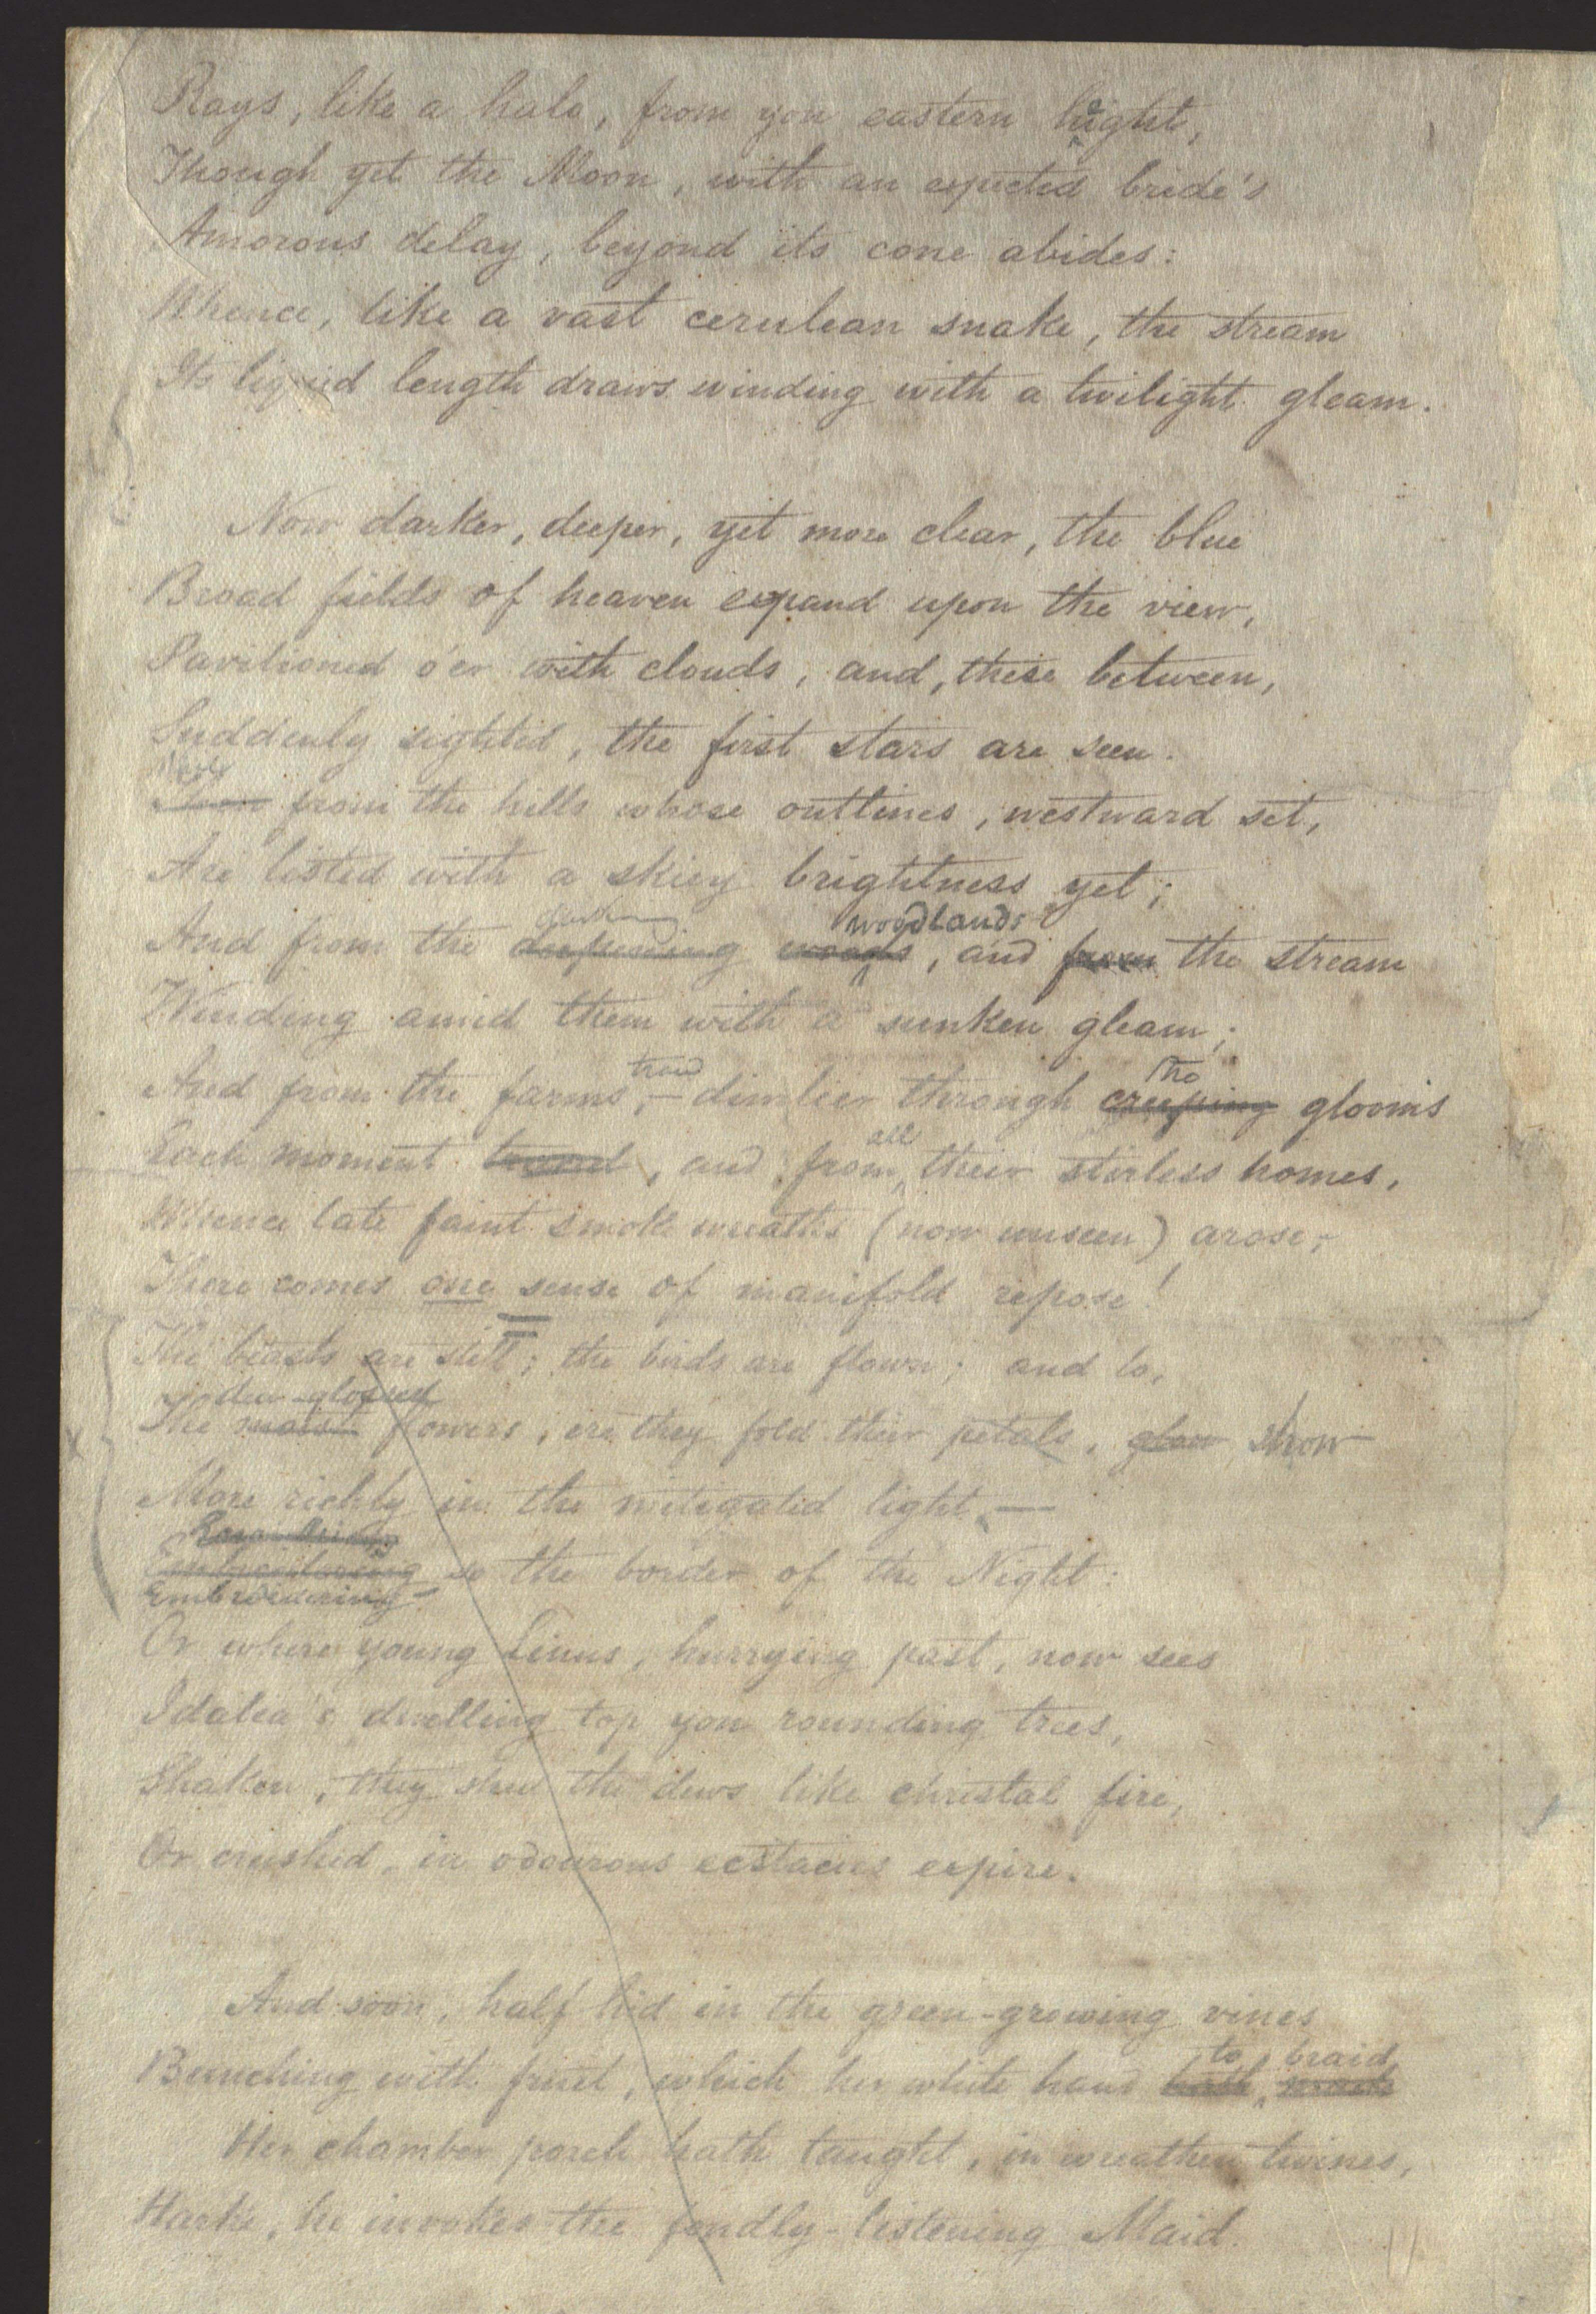 Rays, like a halo, from yon eastern height,
Though yet the Moon, with an expected bride's
Amorous delay, beyond its cone abides:
Whence, like a vast cerulean snake, the stream
Its liquid length draws winding with a twilight gleam.
Now darker, deeper, yet more clear, the blue
Broad fields of heaven expand upon the view,
Pavilioned o'er with clouds, and, these between,
Suddenly sighted, the first stars are seen.
from the hills whose outlines, westward set,
Are listed with a skiey brightness yet;
woodlands
And from the deepening woods, and from the stream
Winding amid them with a sunken gleam;
the
And from the farms,– dimlier through creeping glooms
all
Each moment, and from their stirless homes,
Whence late faint smoke wreaths (now unseen) arose,–
There comes one sense of manifold repose!
The beasts are still; the birds are flown; and lo,
dew-glossed
The moist flowers, ere they fold their petals, glow show
More richly in the mitigated light,—
Embroidering so the border of the Night:
Embroidering
Or where young Linus, hurrying past, now sees
Idalia's dwelling top yon rounding trees,
Shaken, they shed the dews like christal fire,
Or crushed, in odourous ecstacies expire.
And soon, half hid in the green-growing vines
to braid
Bunching with fruit, which her white hand
Her chamber porch hath taught, in wreathen twines,
Harke, he invokes the fondly-listening Maid.